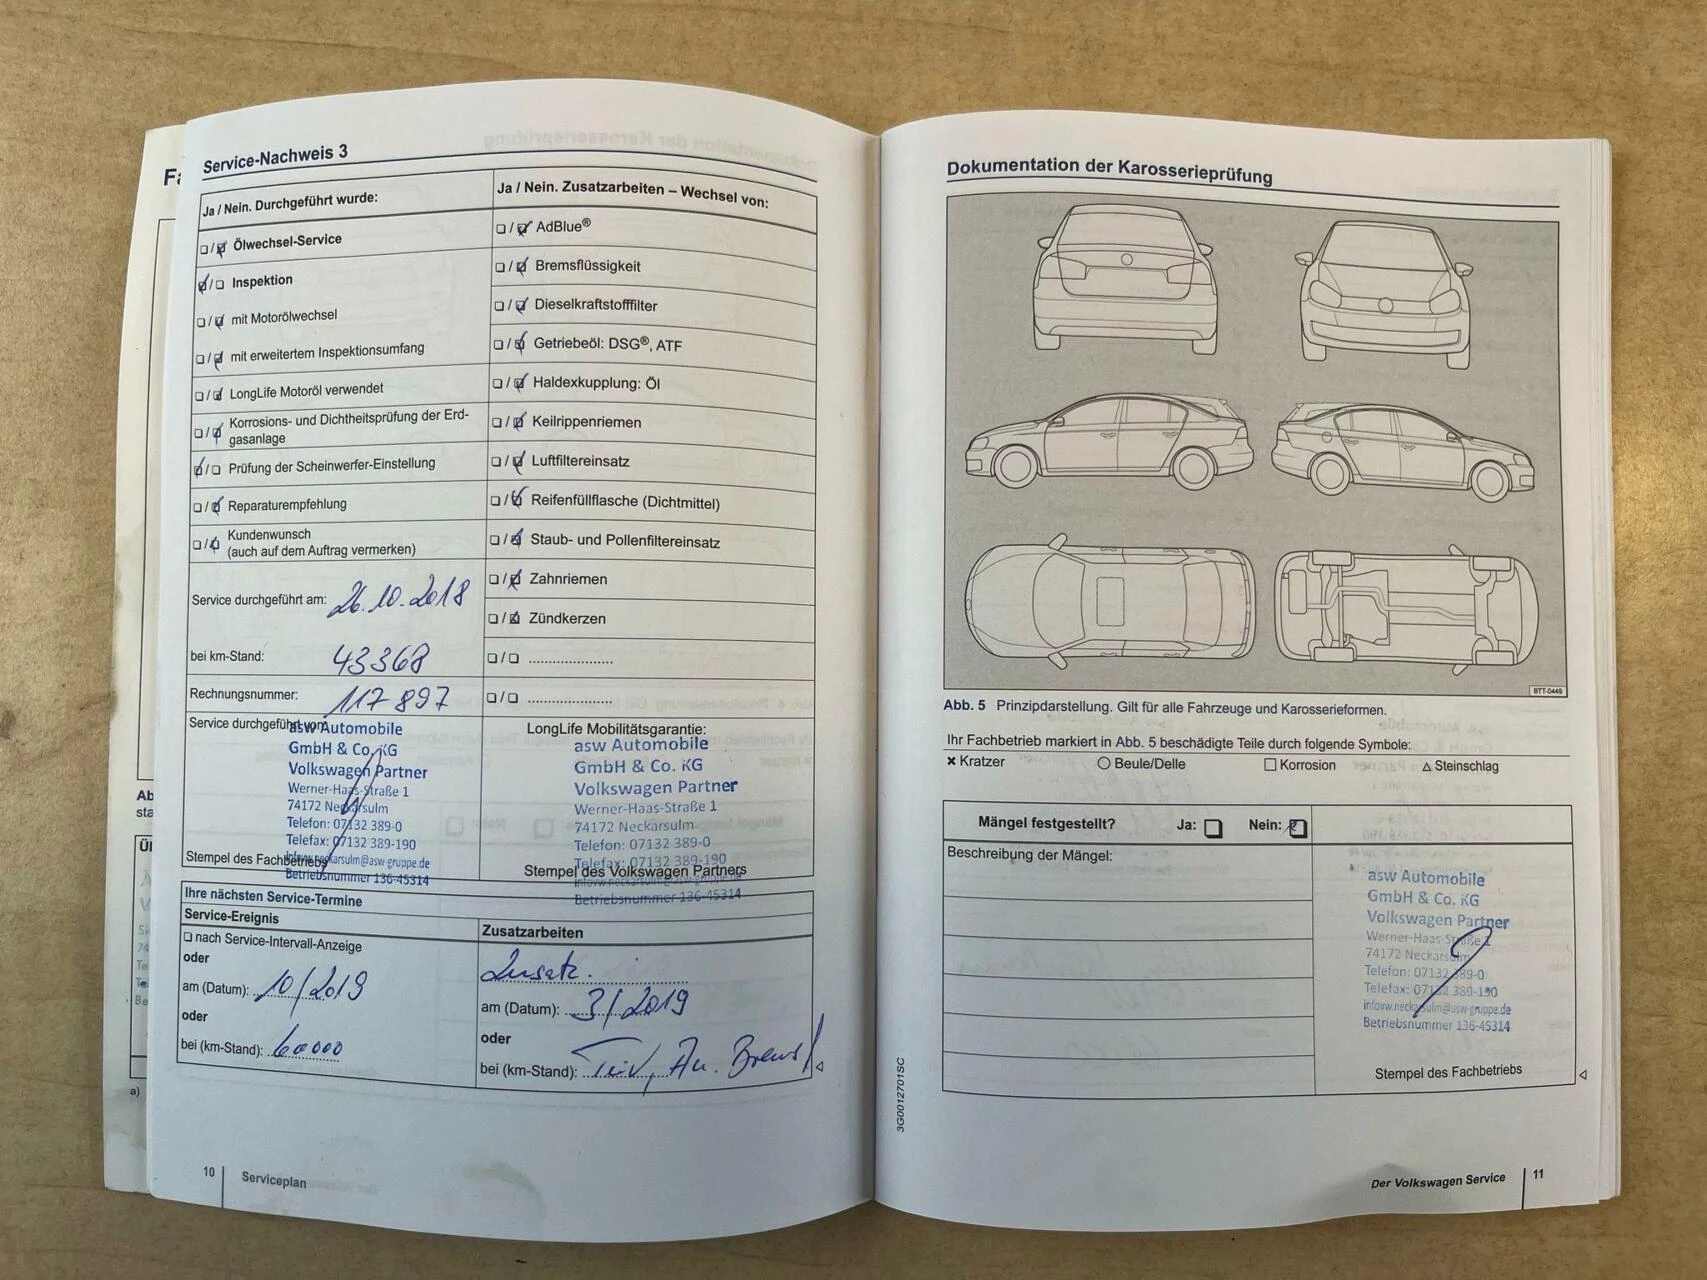 Service-Nachweis 3
Ja / Nein. Durchgeführt wurde:
Ölwechsel-Service
Inspektion
mit Motorölwechsel
mit erweitertem Inspektionsumfang
LongLife Motoröl verwendet
Korrosions- und Dichtheitsprüfung der Erd-
gasanlage
Prüfung der Scheinwerfer-Einstellung
Reparaturempfehlung
Kundenwunsch
(auch auf dem Auftrag vermerken)
Service durchgeführt am: 26.10.2018
bei km-Stand: 43368
Rechnungsnummer: 117897
Ja / Nein. Zusatzarbeiten – Wechsel von:
AdBlue®
Bremsflüssigkeit
Dieselkraftstofffilter
Getriebeöl: DSG®, ATF
Haldexkupplung: Öl
Keilrippenriemen
Luftfiltereinsatz
Reifenfüllflasche (Dichtmittel)
Staub- und Pollenfiltereinsatz
Zahnriemen
Zündkerzen
Service durchgeführt von:
asw Automobile
GmbH & Co. KG
Volkswagen Partner
Werner-Haas-Straße 1
74172 Neckarsulm
Telefon: 07132 389-0
Telefax: 07132 389-190
infovw.neckarsulm@asw-gruppe.de
Betriebsnummer 136-45314
Stempel des Fachbetriebs
LongLife Mobilitätsgarantie:
asw Automobile
GmbH & Co. KG
Volkswagen Partner
Werner-Haas-Straße 1
74172 Neckarsulm
Telefon: 07132 389-0
Telefax: 07132 389-190
infovw.neckarsulm@asw-gruppe.de
Betriebsnummer 136-45314
Stempel des Volkswagen Partners
Ihre nächsten Service-Termine
Service-Ereignis
nach Service-Intervall-Anzeige
oder
am (Datum): 10/2019
oder
bei (km-Stand): 60000
Zusatzarbeiten
Zusatz.
am (Datum): 3/2019
oder
bei (km-Stand): Brems
10 Serviceplan
Dokumentation der Karosserieprüfung
BTT-0449
Abb. 5 Prinzipdarstellung. Gilt für alle Fahrzeuge und Karosserieformen.
Ihr Fachbetrieb markiert in Abb. 5 beschädigte Teile durch folgende Symbole:
Kratzer Beule/Delle Korrosion Steinschlag
Mängel festgestellt? Ja: Nein:
Beschreibung der Mängel:
asw Automobile
GmbH & Co. KG
Volkswagen Partner
Werner-Haas-Straße 1
74172 Neckarsulm
Telefon: 07132 389-0
Telefax: 07132 389-190
infovw.neckarsulm@asw-gruppe.de
Betriebsnummer 136-45314
Stempel des Fachbetriebs
3G0012701SC
Der Volkswagen Service 11